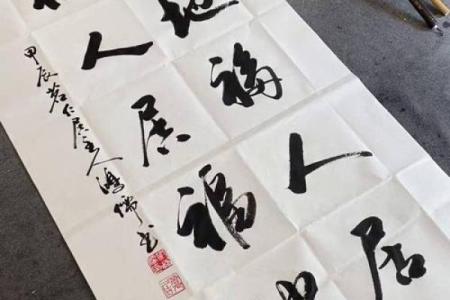 地福人居
人居福
甲辰仁居主人鸿儒书